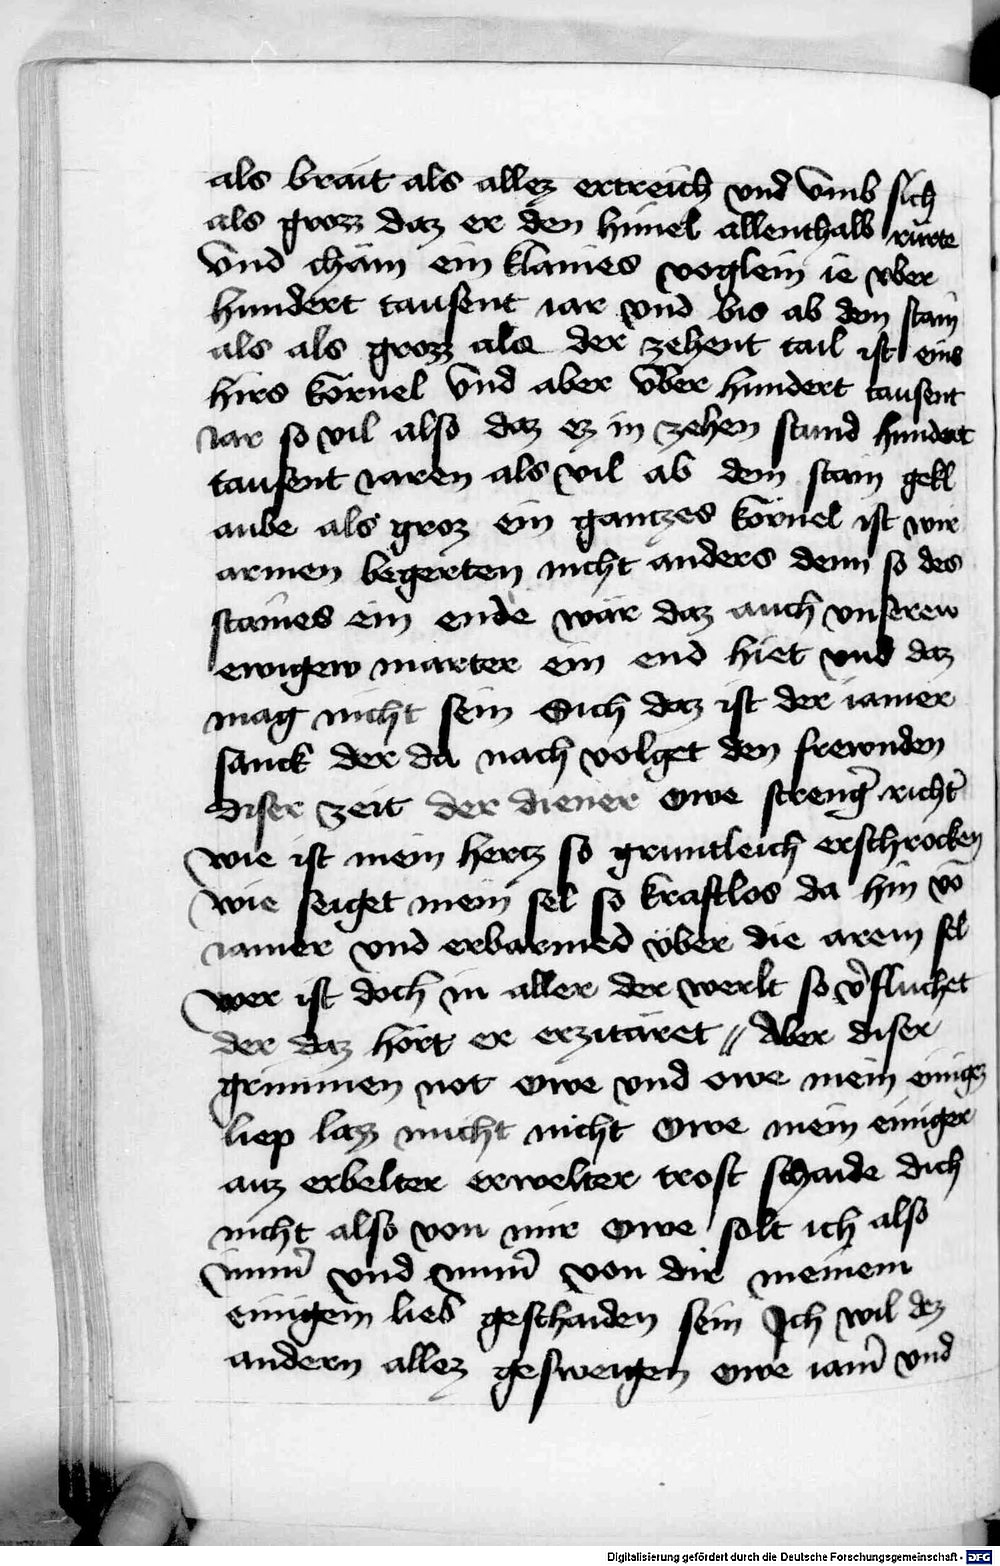 als brait als allez ertreich vnd vmb sich
als grozz daz er den himel allenthalb rürte
vnd chäm ein klaines voglein ie vber
hundert tausent iar vnd bis ab dem stain
als als grozz als der zehent tail ist eins
hirs körnel vnd aber vber hundert tausent
iar so vil also daz ez in zehen stund hundert
tausent iaren als vil ab dem stain gekl
aube als groz ein gantzes körnel ist wir
armen begerten nicht anders denn so des
staines ein ende wär daz auch vnserew
ewigew marter ein end hiet vnd daz
mag nicht sein Sich daz ist der iamer
sanck der da nach volget den frewnden
diser zeit der diener owe streng̉ richt̉
wie ist mein hertz so gruntleich erschrocken
wie seiget mein sel so kraftlos da hin vō
iamer vnd erbarmed über die arem sel
wer ist doch in aller der werlt so v̉fluchet
der daz hört er erzitäret // Aber diser
grimmen not owe vnd owe mein einigez
liep lazz micht nicht Owe mein einiger
auz erbelter erwelter trost schaide dich
nicht also von mir owe solt ich also
imm̉ vnd imm̉ von dir meinem
einigem lieb geschaiden sein Ich wil dez
andern allez gesweigen owe iam̉ vnd
Digitalisierung gefördert durch die Deutsche Forschungsgemeinschaft - DFG